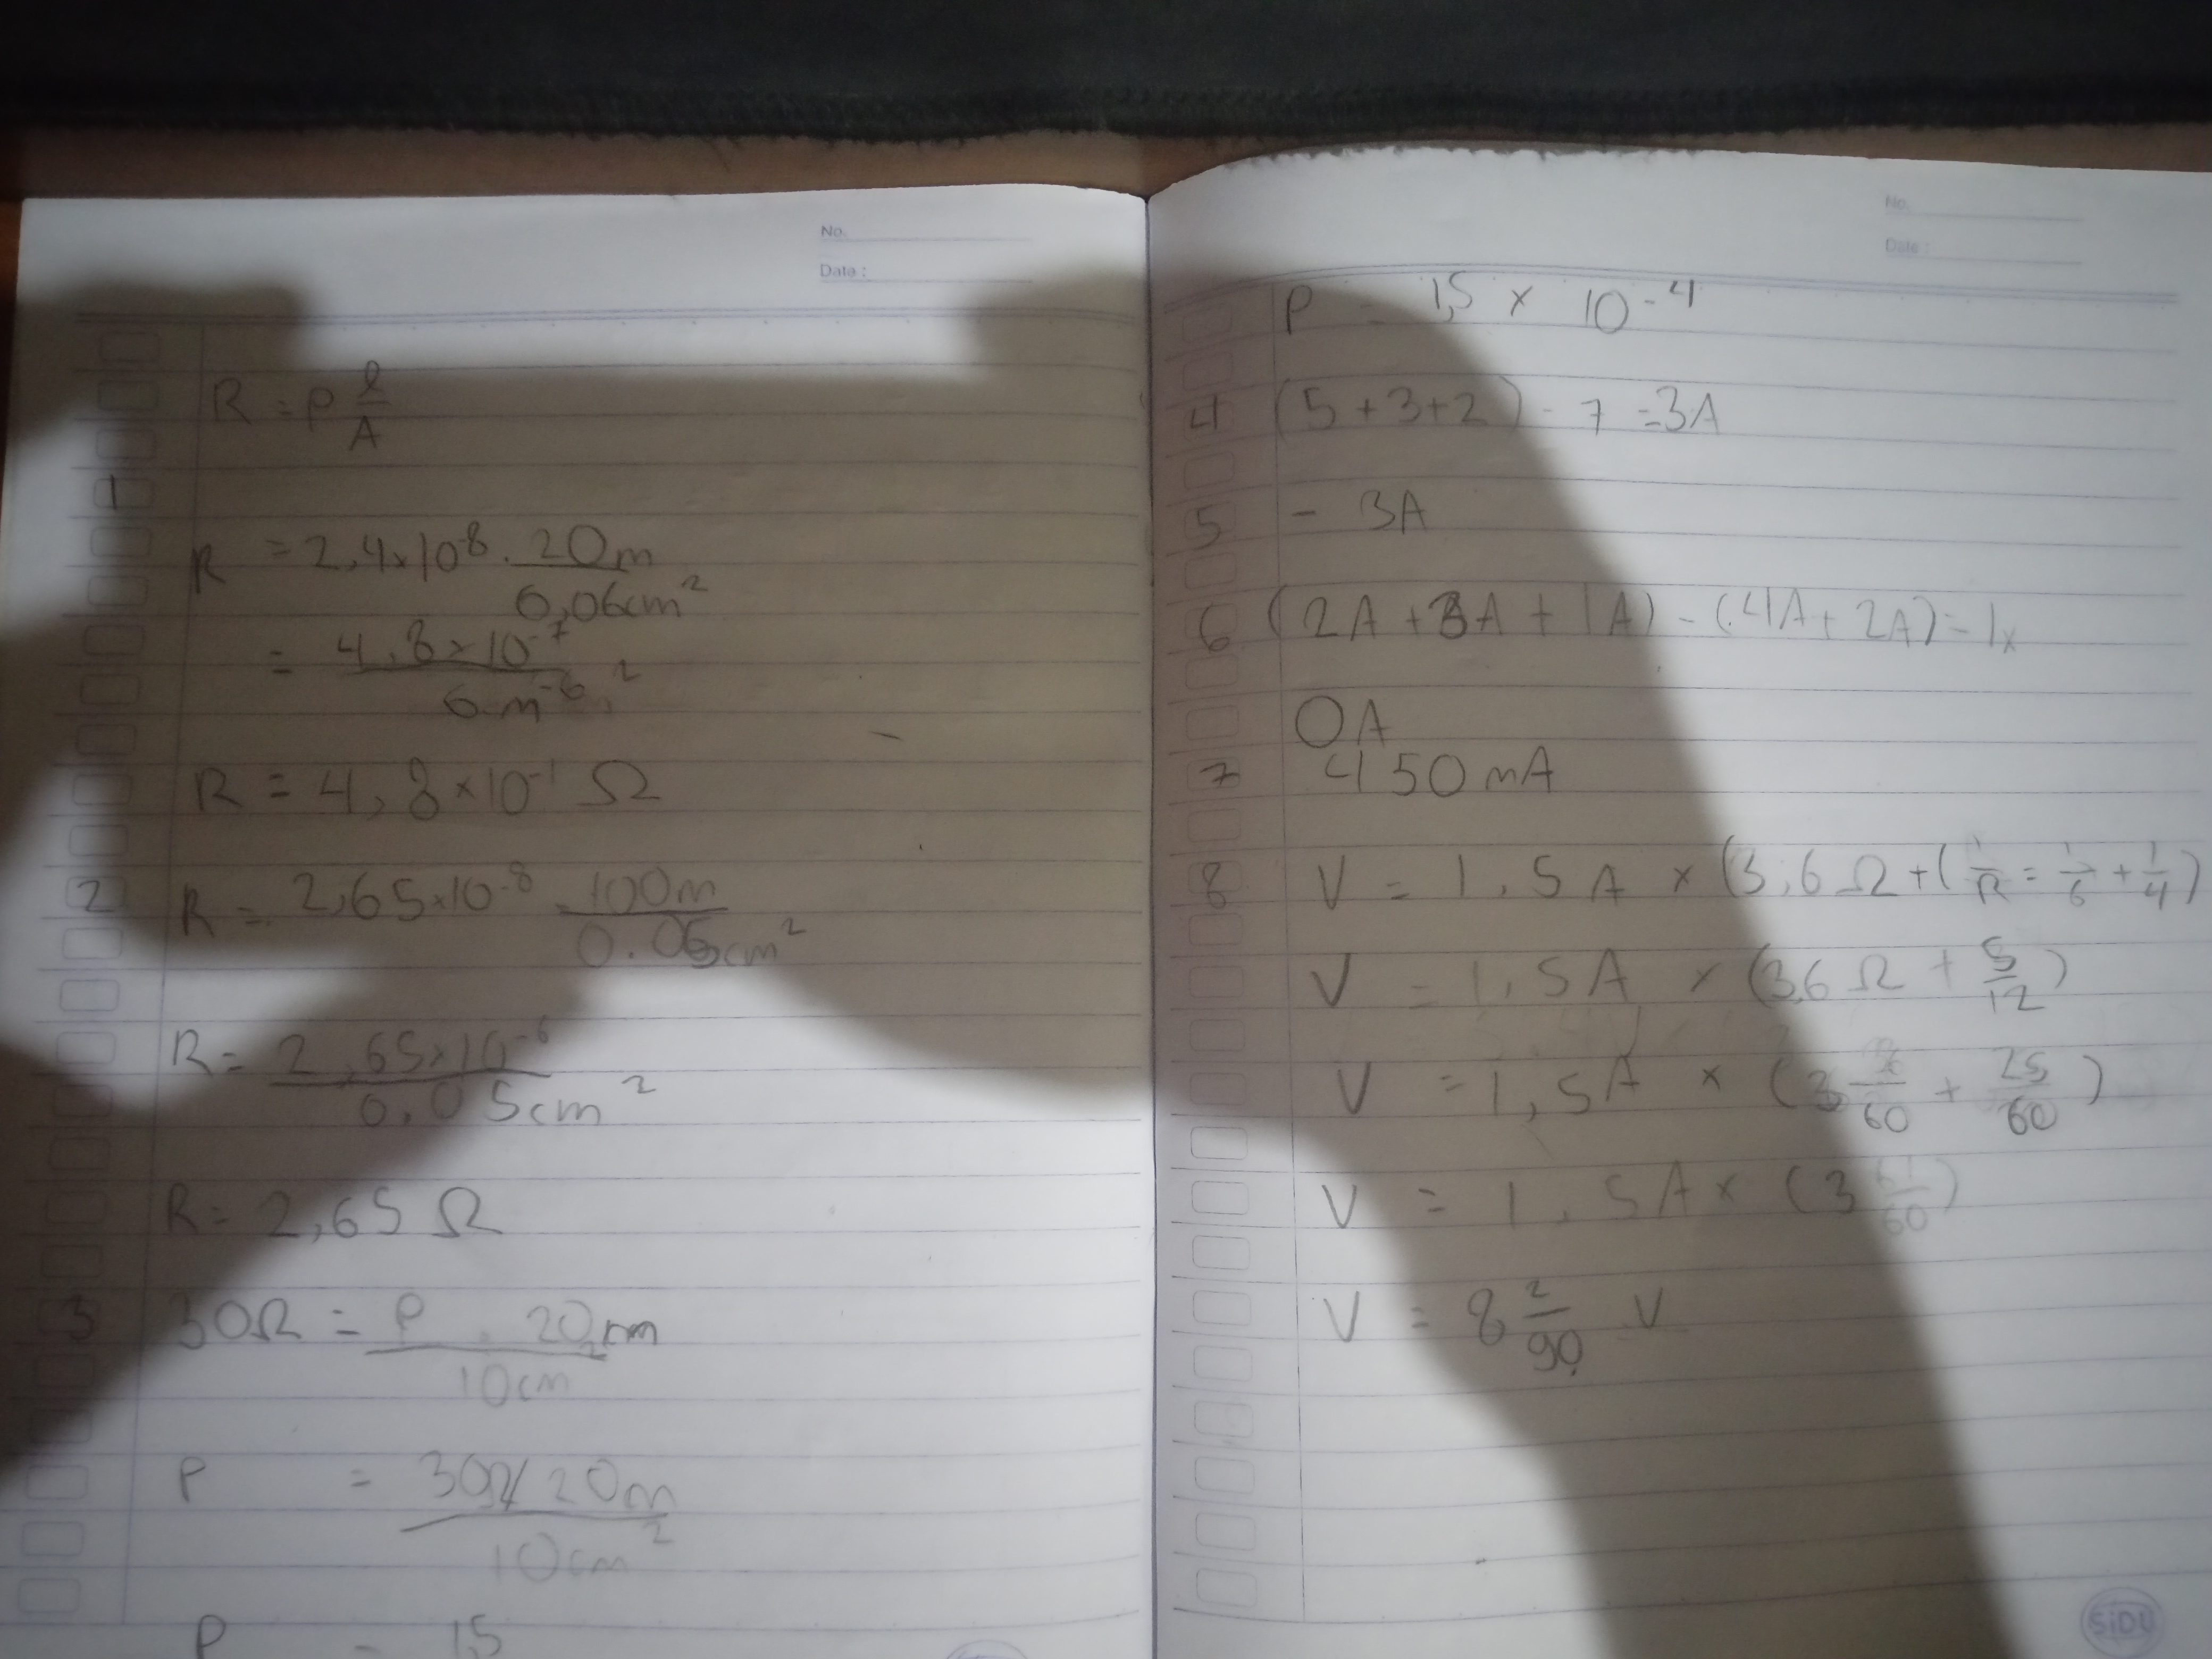 No.
Date :
R = ρ l/A
1
R = 2,4x10-8 . 20m/0,06cm²
= 4.8 x 10-7/6 m-6 2
R = 4,8 x 10-1 Ω
2 R = 2,65x10-8 . 100m/0.05cm²
R = 2,65x10-6/0.05cm²
R = 2,65 Ω
3 30Ω = ρ . 20m/10cm²
ρ = 20m/10cm²
ρ = 1,5
No.
Date :
ρ = 1,5 x 10-4
4 (5+3+2) - 7 = 3A
5 - 3A
6 (2A + 3A + 1A) - (4A + 2A) = 1x
0A
7 450 mA
8 V = 1,5 A x (3,6 Ω + (1/R = 1/6 + 1/4)
V = 1,5A x (3,6 Ω + 5/12)
V = 1,5A x (3 /60 + 25/60)
V = 1,5A x (3 61/60)
V = 8 2/90 V
SiDU